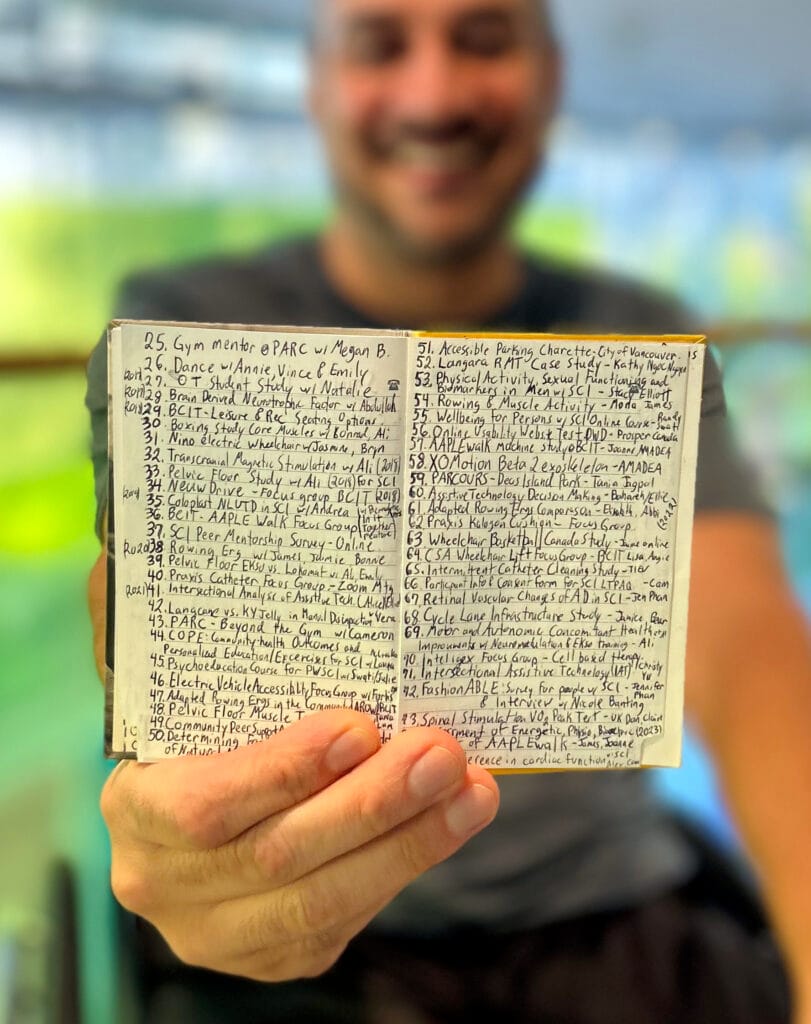 25. Gym mentor @ PARC w/ Megan B.
26. Dance w/ Annie, Vince & Emily
27. OT Student Study w/ Natalie
28. Brain Derived Neurotrophic Factor w/ Abdullah
29. BCIT - Leisure & Rec Seating Options
30. Boxing Study Core Muscles w/ Bonnie, Ali
31. Nino electric wheelchair w/ Jasmine, Bryn
32. Transcranial Magnetic Stimulation w/ Ali (2018)
33. Pelvic Floor Study w/ Ali (2018) for SCI
34. Neuw Drive - Focus group BCIT (2018)
35. Coloplast NLUTD in SCI w/ Andrea
36. BCIT - AAPLE Walk Focus Group (In it Together
37. SCI Peer Mentorship Survey - Online
2020 38. Rowing Erg w/ James, Jaimie Bonne
39. Pelvic Floor EKSO vs. Lokomat w/ Ali, Emily
40. Praxis Catheter Focus Group - Zoom Mtg
2021 41. Intersectional Analyse of Assistive Tech.
42. Langcane vs. KY Jelly in Manual Disimpaction Vera
43. PARC - Beyond the Gym w/ Cameron
44. COPE: Community health Outcomes and
Personalized Education/Excercises for SCI w/
45. Psychoeducation Course for PWSCI w/ Swati/Julie
46. Electric Vehicle Accessiblity Focus Group w/
47. Adapted Rowing Ergs in the Community AROW/BCIT
48. Pelvic Floor Muscle
49. Community Peer Support
50. Determining
of
51. Accessible Parking Charette - City of Vancouver
52. Langara RMT Case Study - Kathy Ngoc Nguyen
53. Physical Activity, Sexual Functioning and
Biomarkers in Men w/ SCI - Stacy Elliott
54. Rowing & Muscle Activity - Moda James
55. Wellbeing for Persons w/ SCI Online Course -
56. Online Usability Website Test DWD - Prosper Canada
57. AAPLE walk machine study @ BCIT - Joanne/AMADEA
58. XOMotion Beta 2 exoskeleton - AMADEA
59. PARCOURS - Deas Island Park - Tania
60. Assistive Technology Decision Making -
61. Adapted Rowing Ergs Comparison - Elizabeth, Abbi (2022)
62. Praxis Kalogon Cushion - Focus Group
63. Wheelchair Basketball Canada Study - June online
64. CSA Wheelchair Lift Focus Group - BCIT Lisa, Angie
65. Intermittent Catheter Cleaning Study - Tiev
66. Participant Info & Consent form for SCI LTPAQ - Cam
67. Retinal Vascular Changes of AD in SCI - Jen Phan
68. Cycle Lane Infrastructure Study - Janice,
69. Motor and Autonomic Concomitant Health
Improvments w/ Neuromodulation & EKSO training - Ali
70. Inteligex Focus Group - Cell based therapy
71. Intersectional Assistive Technology (AT) Christy Yu
72. FashionABLE: Survey for people w/ SCI - Jennifer Phan
& Interview w/ Nicole Banting
73. Spinal Stimulation VO2 Peak Test - UK Dan, Claire
of Energetic, Physio, (2023)
of AAPLEwalk - James, Joanne
in cardiac function w/ SCI
Alex, Cam